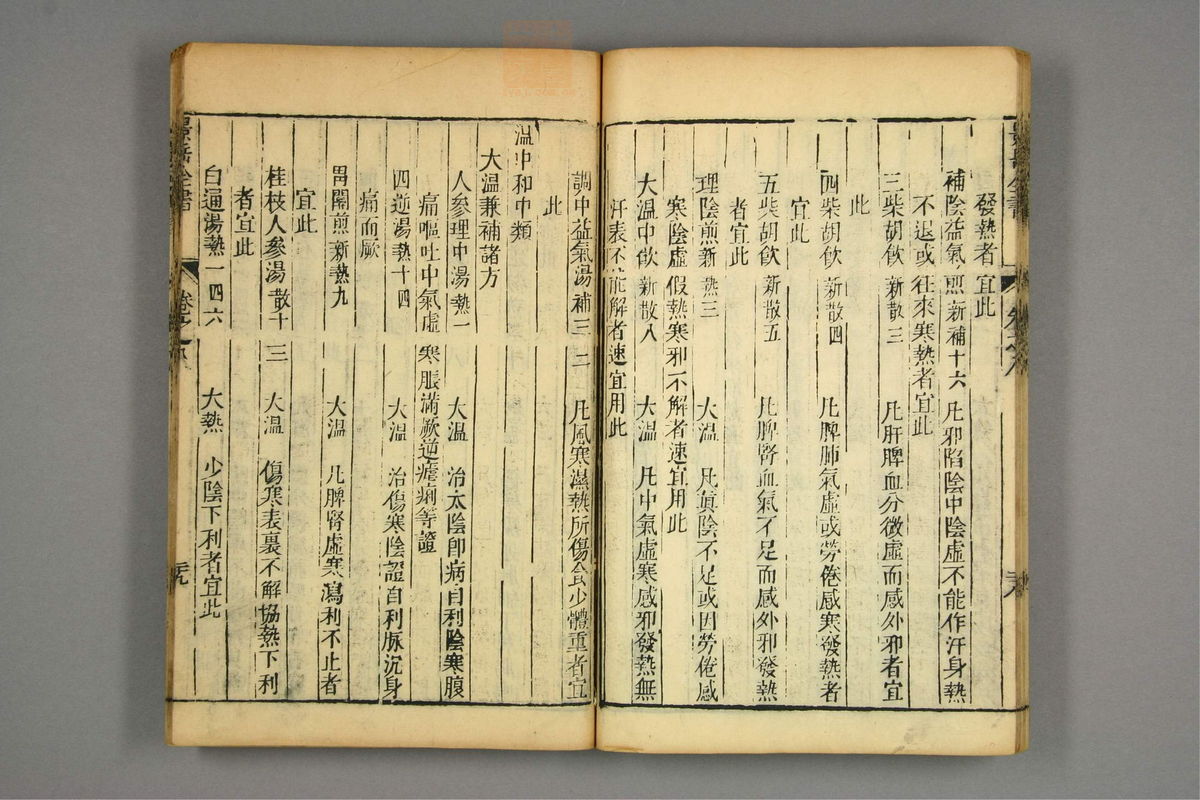 發熱者宜此
補陰益氣煎新補十六 凡邪陷陰中陰虛不能作汗身熱
不退或往來寒熱者宜此
三柴胡飲 新散三 凡肝脾血分微虛而感外邪者宜
此
四柴胡飲 新散四 凡脾肺氣虛或勞倦感寒發熱者
宜此
五柴胡飲 新散五 凡脾腎血氣不足而感外邪發熱
者宜此
理陰煎新熱三 大溫 凡眞陰不足或因勞倦感
寒陰虛假熱寒邪不解者速宜用此
大溫中飲 新散八 大溫 凡中氣虛寒感邪發熱無
汗表不能解者速宜用此
調中益氣湯補三二 凡風寒濕熱所傷食少體重者宜
此
溫中和中類
大溫兼補諸方
人參理中湯熱一 大溫 治太陰卽病自利陰寒腹
痛嘔吐中氣虛寒脹滿厥逆瘧痢等證
四逆湯熱十四 大溫 治傷寒陰證自利脉沉身
痛而厥
胃關煎新熱九 大溫 凡脾腎虛寒瀉利不止者
宜此
桂枝人參湯散十三 大溫 傷寒表裏不解協熱下利
者宜此
白通湯熱一四六 大熱 少陰下利者宜此
景岳全書
卷之八